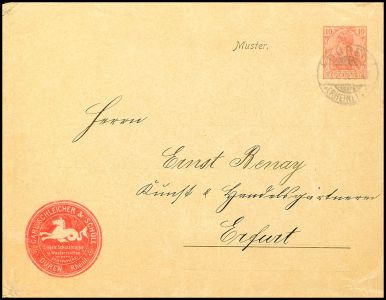 Muster.
10 10
DÜREN
(RHEINL.)
Herrn
Ernst Benary
Kunst & Handelsgärtnerei
Erfurt
CARL SCHLEICHER & SCHÜLL
DÜREN, Rheinl.